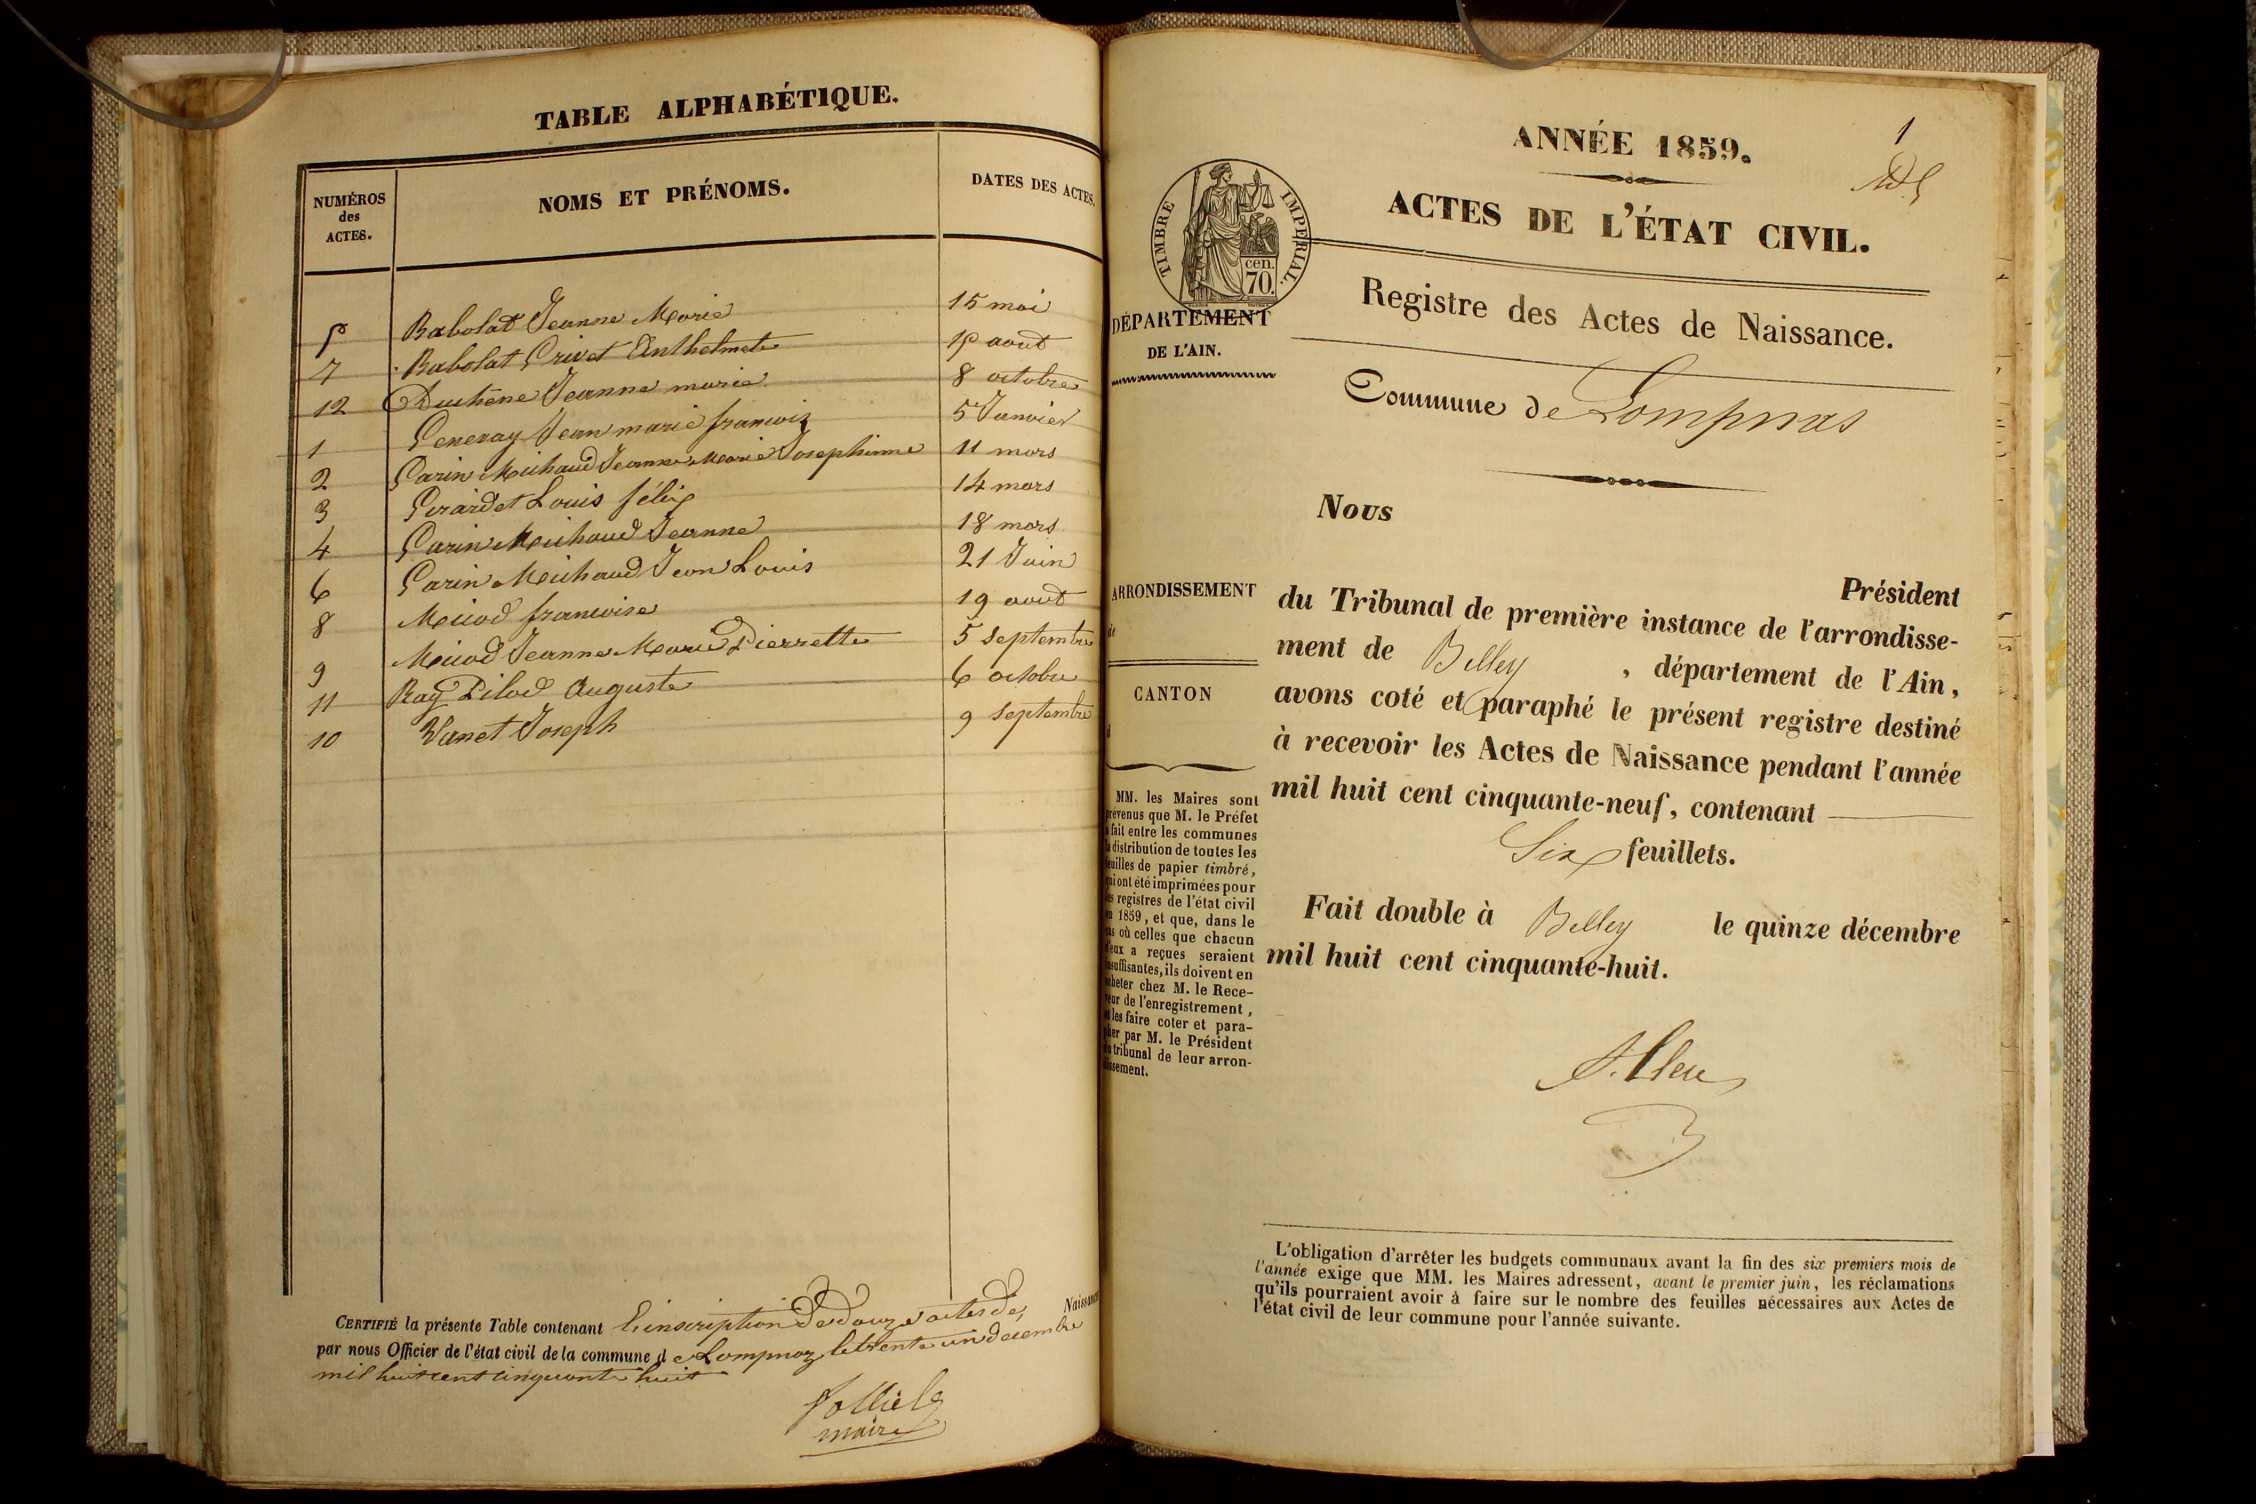 TABLE ALPHABÉTIQUE.
NUMÉROS des ACTES. NOMS ET PRÉNOMS. DATES DES ACTES.
5 Babolat Jeanne Marie 15 mai
7 Babolat Grivet Anthelmete 15 aout
12 Duchêne Jeanne marie 8 octobre
1 Generay Jean marie francois 5 Janvier
2 Garin Michaud Jeanne Marie Josephinne 11 mars
3 Girardet Louis félix 14 mars
4 Garin Michaud Jeanne 18 mars
6 Garin Michaud Jean Louis 21 Juin
8 Micod francoise 19 aout
9 Micod Jeanne Marie Pierrette 5 septembre
11 Ray Pilod Auguste 6 octobre
10 Vanet Joseph 9 septembre
CERTIFIÉ la présente Table contenant l'inscription de douze actes de Naissance
par nous Officier de l'état civil de la commune de Lompnaz le trente un decembre
mil huit cent cinquante huit
maire
1
ANNÉE 1859.
ACTES DE L'ÉTAT CIVIL.
TIMBRE IMPÉRIAL.
cen. 70.
DÉPARTEMENT
DE L'AIN.
Registre des Actes de Naissance.
Commune de Lompnas
Nous
Président
du Tribunal de première instance de l'arrondisse-
ment de Belley, département de l'Ain,
avons coté et paraphé le présent registre destiné
à recevoir les Actes de Naissance pendant l'année
mil huit cent cinquante-neuf, contenant
Six feuillets.
Fait double à Belley le quinze décembre
mil huit cent cinquante-huit.
ARRONDISSEMENT
de
CANTON
d
MM. les Maires sont
prévenus que M. le Préfet
a fait entre les communes
la distribution de toutes les
feuilles de papier timbré,
qui ont été imprimées pour
les registres de l'état civil
en 1859, et que, dans le
cas où celles que chacun
d'eux a reçues seraient
insuffisantes, ils doivent en
acheter chez M. le Rece-
veur de l'enregistrement,
et les faire coter et para-
pher par M. le Président
du tribunal de leur arron-
dissement.
L'obligation d'arrêter les budgets communaux avant la fin des six premiers mois de
l'année exige que MM. les Maires adressent, avant le premier juin, les réclamations
qu'ils pourraient avoir à faire sur le nombre des feuilles nécessaires aux Actes de
l'état civil de leur commune pour l'année suivante.